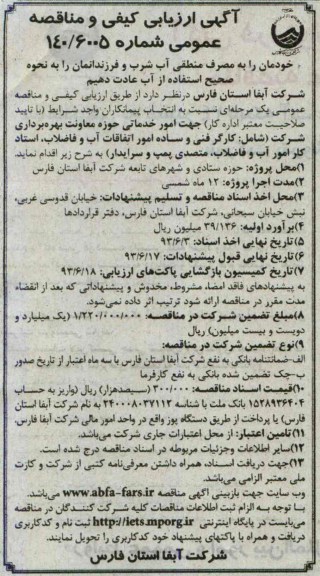 آگهی ارزیابی کیفی و مناقصه
عمومی شماره ۱۴۰/۶۰۰۵
خودمان را به مصرف منطقی آب شرب و فرزندانمان را به نحوه
صحیح استفاده از آب عادت دهیم
شرکت آبفا استان فارس درنظر دارد از طریق ارزیابی کیفی و مناقصه
عمومی یک مرحله‌ای نسبت به انتخاب پیمانکاران واجد شرایط (با تایید
صلاحیت معتبر اداره کار) جهت امور خدماتی حوزه معاونت بهره‌برداری
شرکت (شامل: کارگر فنی و ساده امور اتفاقات آب و فاضلاب، استاد
کار امور آب و فاضلاب، متصدی پمپ و سرایدار) به شرح زیر اقدام نماید.
۱)محل پروژه: حوزه ستادی و شهرهای تابعه شرکت آبفا استان فارس
۲)مدت اجرا پروژه: ۱۲ ماه شمسی
۳)محل اخذ اسناد مناقصه و تسلیم پیشنهادات: خیابان قدوسی غربی،
نبش خیابان سبحانی، شرکت آبفا استان فارس، دفتر قراردادها
۴)برآورد اولیه: ۳۹/۱۳۶ میلیون ریال
۵)تاریخ نهایی اخذ اسناد: ۹۳/۶/۳
۶)تاریخ نهایی قبول پیشنهادات: ۹۳/۶/۱۷
۷)تاریخ کمیسیون بازگشایی پاکت‌های ارزیابی: ۹۳/۶/۱۸
به پیشنهادهای فاقد امضاء مشروط، مخدوش و پیشنهاداتی که بعد از انقضاء
مدت مقرر در مناقصه ارائه شود ترتیب اثر داده نمی‌شود.
۸)مبلغ تضمین شرکت در مناقصه: ۱/۲۲۰/۰۰۰/۰۰۰ (یک میلیارد و
دویست و بیست میلیون) ریال
۹)نوع تضمین شرکت در مناقصه:
الف-ضمانتنامه بانکی به نفع شرکت آبفا استان فارس با سه ماه اعتبار از تاریخ صدور
ب-چک تضمین شده بانکی به نفع کارفرما
۱۰)قیمت اسناد مناقصه: ۳۰۰/۰۰۰ (سیصدهزار) ریال (واریز به حساب
۱۵۲۸۹۳۶۴۰۴ بانک ملت با شناسه ۲۴۰۰۰۸۰۳۷۱۱۲ به نام شرکت آبفا استان
فارس) یا پرداخت از طریق دستگاه پوز واقع در واحد امور مالی شرکت آبفا فارس.
۱۱)تامین اعتبار: از محل اعتبارات جاری شرکت می‌باشد.
۱۲)سایر اطلاعات وجزئیات مربوطه در اسناد مناقصه درج شده است.
۱۳)جهت دریافت اسناد، همراه داشتن معرفی‌نامه کتبی از شرکت و کارت
ملی معتبر الزامی می‌باشد.
وب سایت جهت بازبینی آگهی مناقصه www.abfa-fars.ir می‌باشد.
با توجه به الزام ثبت اطلاعات مناقصات کلیه شرکت کنندگان در مناقصه
می‌بایست در پایگاه اینترنتی http://iets.mporg.ir ثبت نام و کدکاربری
دریافت و همراه با پاکتهای پیشنهاد خود کدکاربری را تحویل نمایند.
شرکت آبفا استان فارس